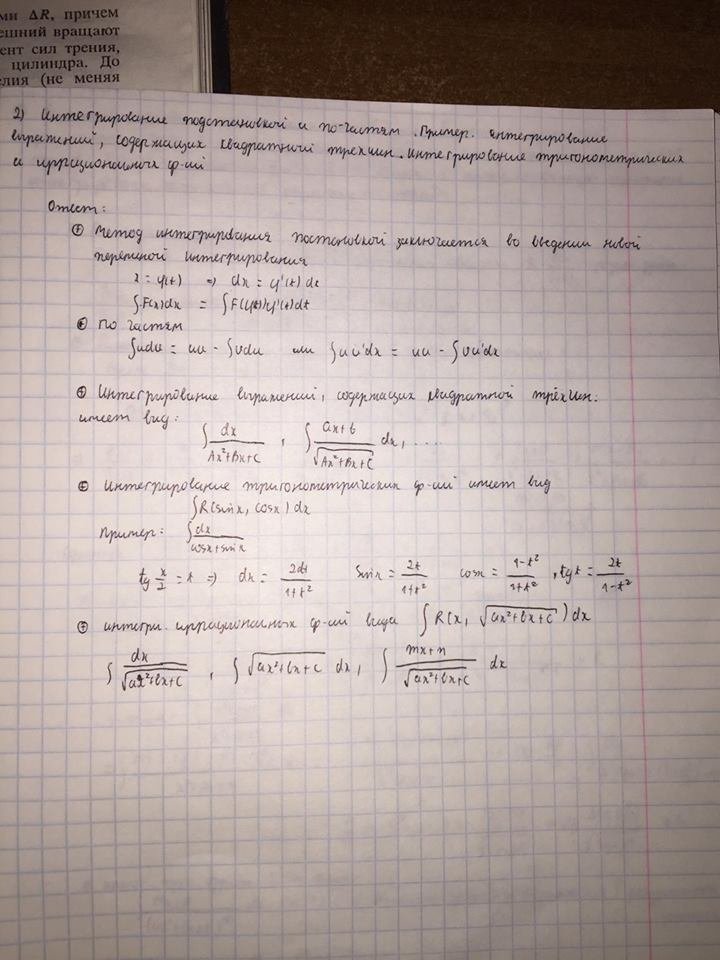 ми ΔR, причем
ешний вращают
ент сил трения,
цилиндра. До
елия (не меняя
2) Интегрирование подстановкой и по-частям. Пример. интегрирование
выражений, содержащих квадратный трехчлен. Интегрирование тригонометрических
и иррациональных ф-ий
Ответ:
Метод интегрирования постановкой заключается во введении новой
переменой интегрирования
x = φ(t) ⇒ dx = φ'(t) dt
∫F(x)dx = ∫F(φ(t))φ'(t)dt
по частям
∫udu = uu - ∫vdu или ∫uu'dx = uu - ∫vu'dx
Интегрирование выражений, содержащих квадратной трёхчлен.
имеет вид:
∫ dx / (Ax²+Bx+C) , ∫ (ax+b) / √(Ax²+Bx+C) dx, ....
Интегрирование тригонометрических ф-ий имеет вид
∫R(sinx, cosx) dx
Пример: ∫ dx / (cosx+sinx)
tg x/2 = t ⇒ dx = 2dt / (1+t²) sinx = 2t / (1+t²) cosx = (1-t²) / (1+t²) , tgx = 2t / (1-t²)
интегри. иррациональных ф-ий вида ∫R(x, √(ax²+bx+c)) dx
∫ dx / √(ax²+bx+c) , ∫ √(ax²+bx+c) dx, ∫ (mx+n) / √(ax²+bx+c) dx